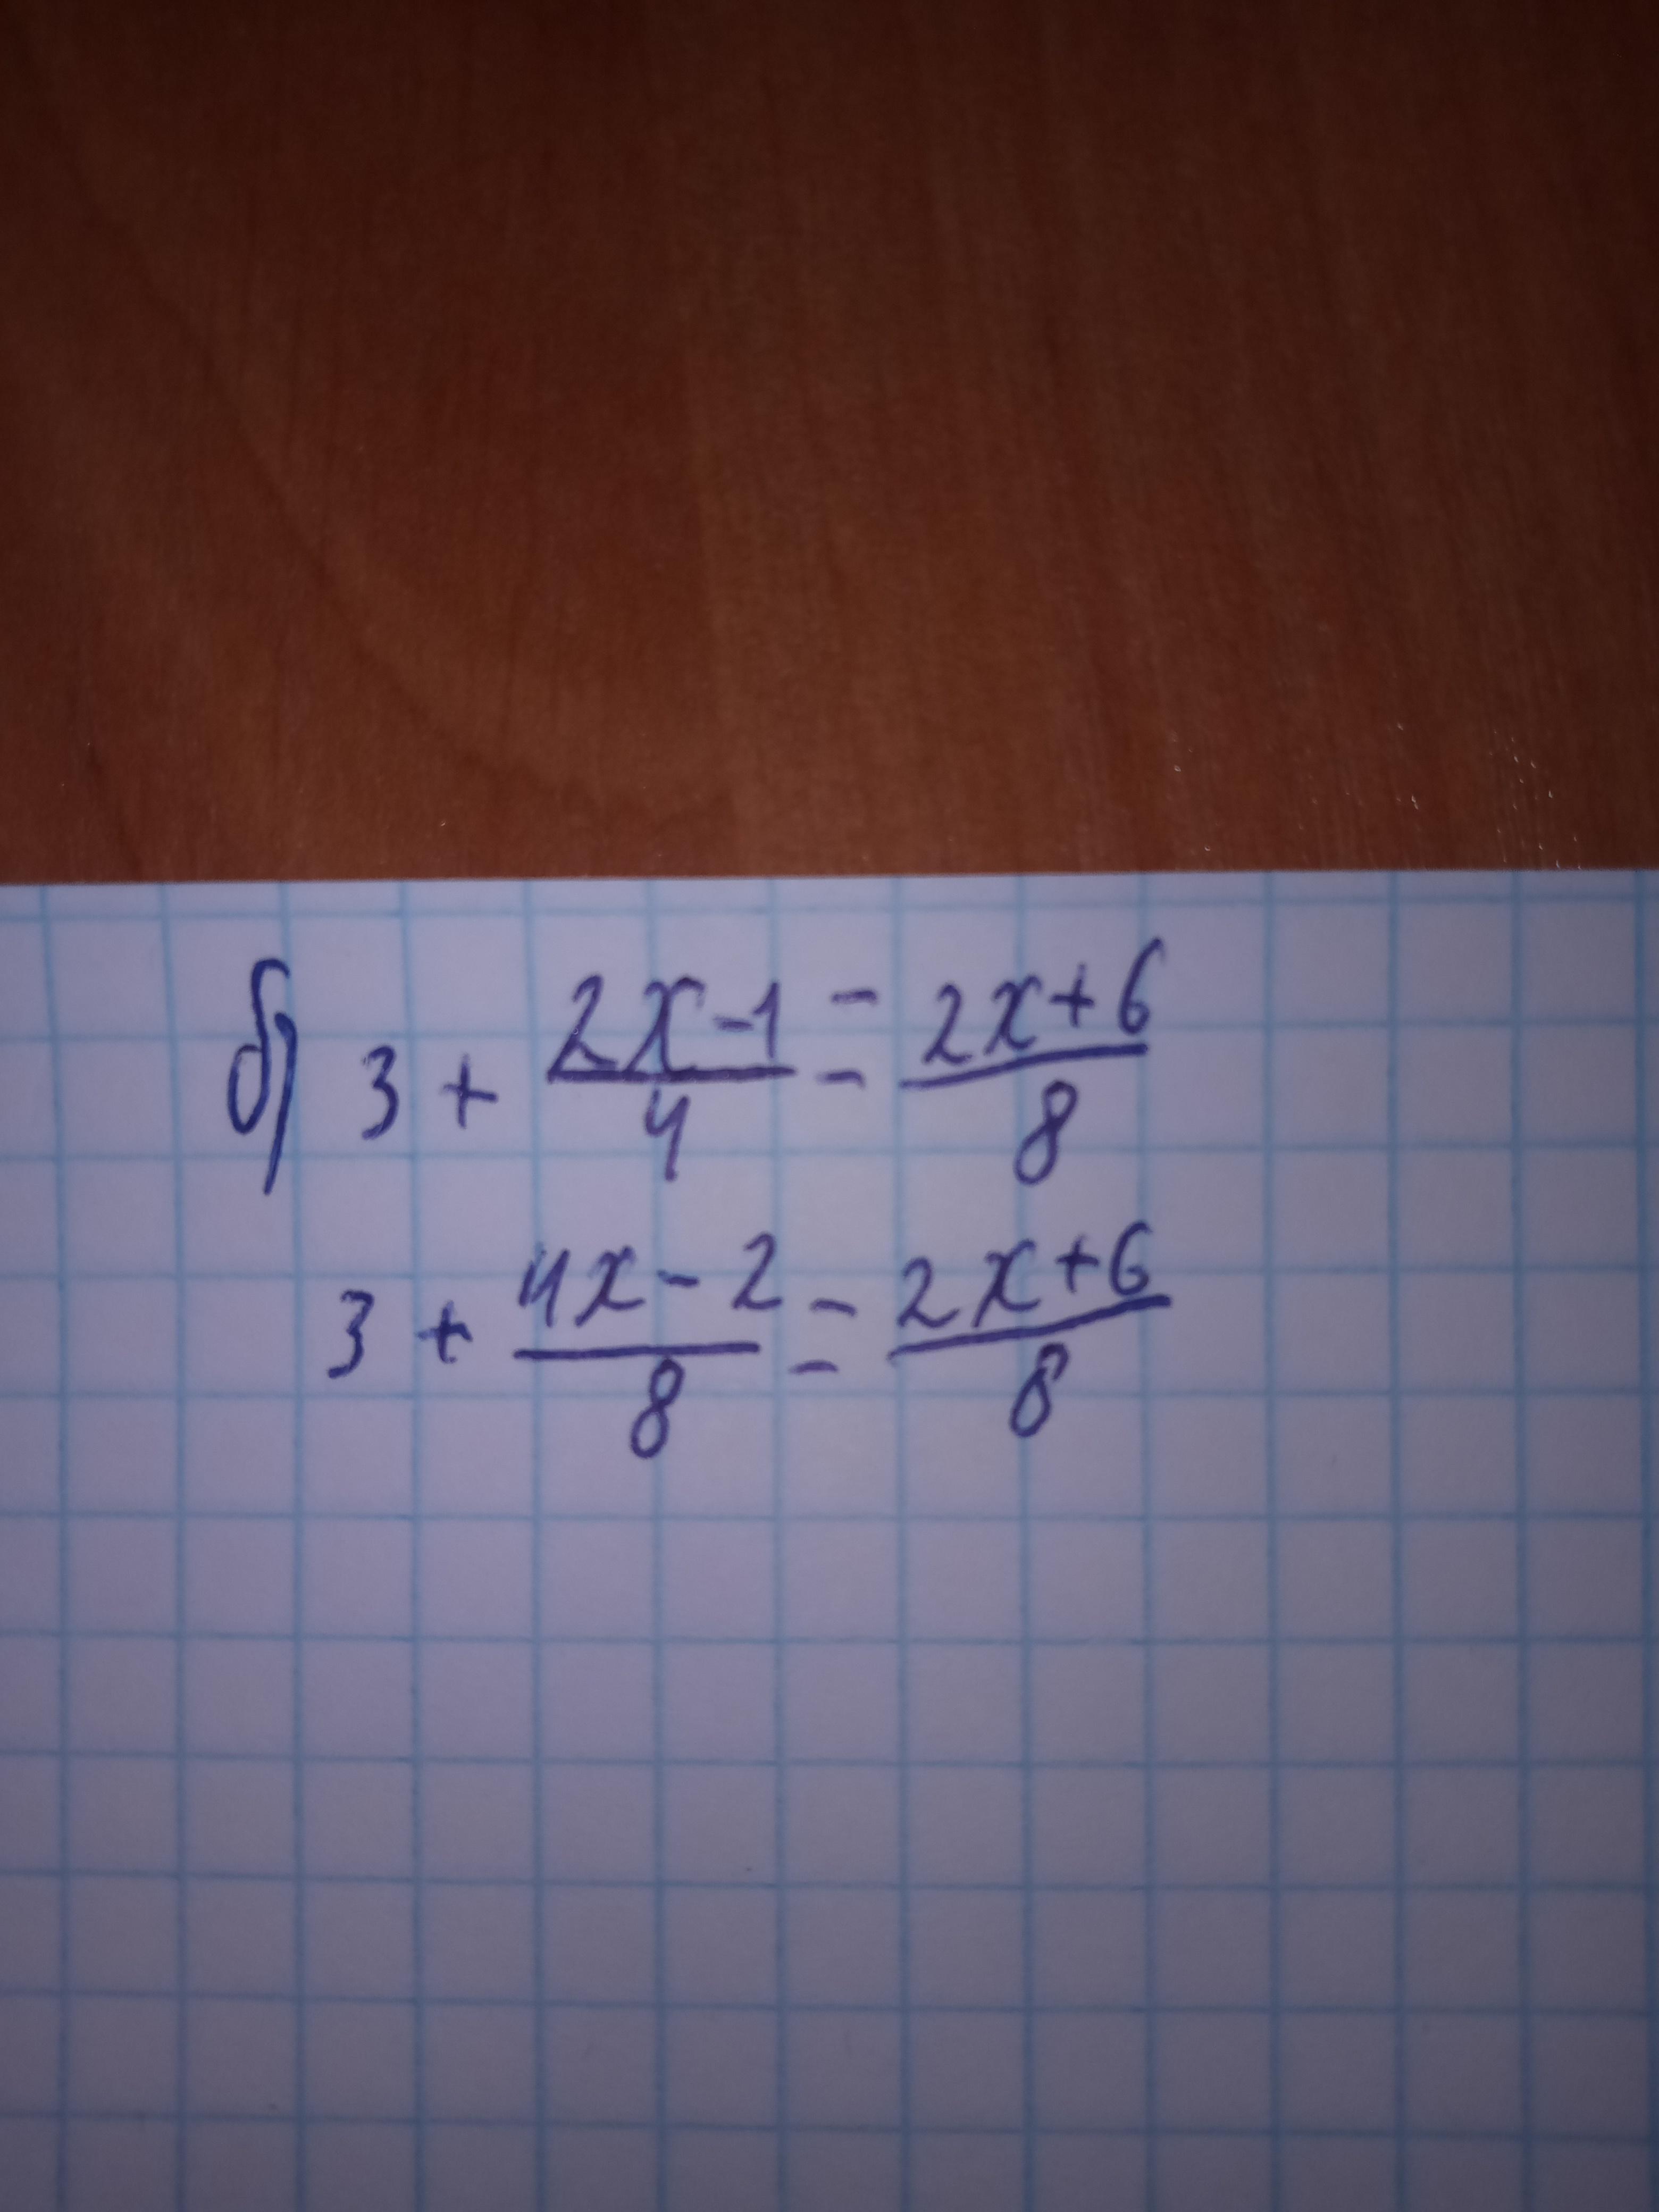 б) 3 + (2x-1)/4 = (2x+6)/8
3 + (4x-2)/8 = (2x+6)/8